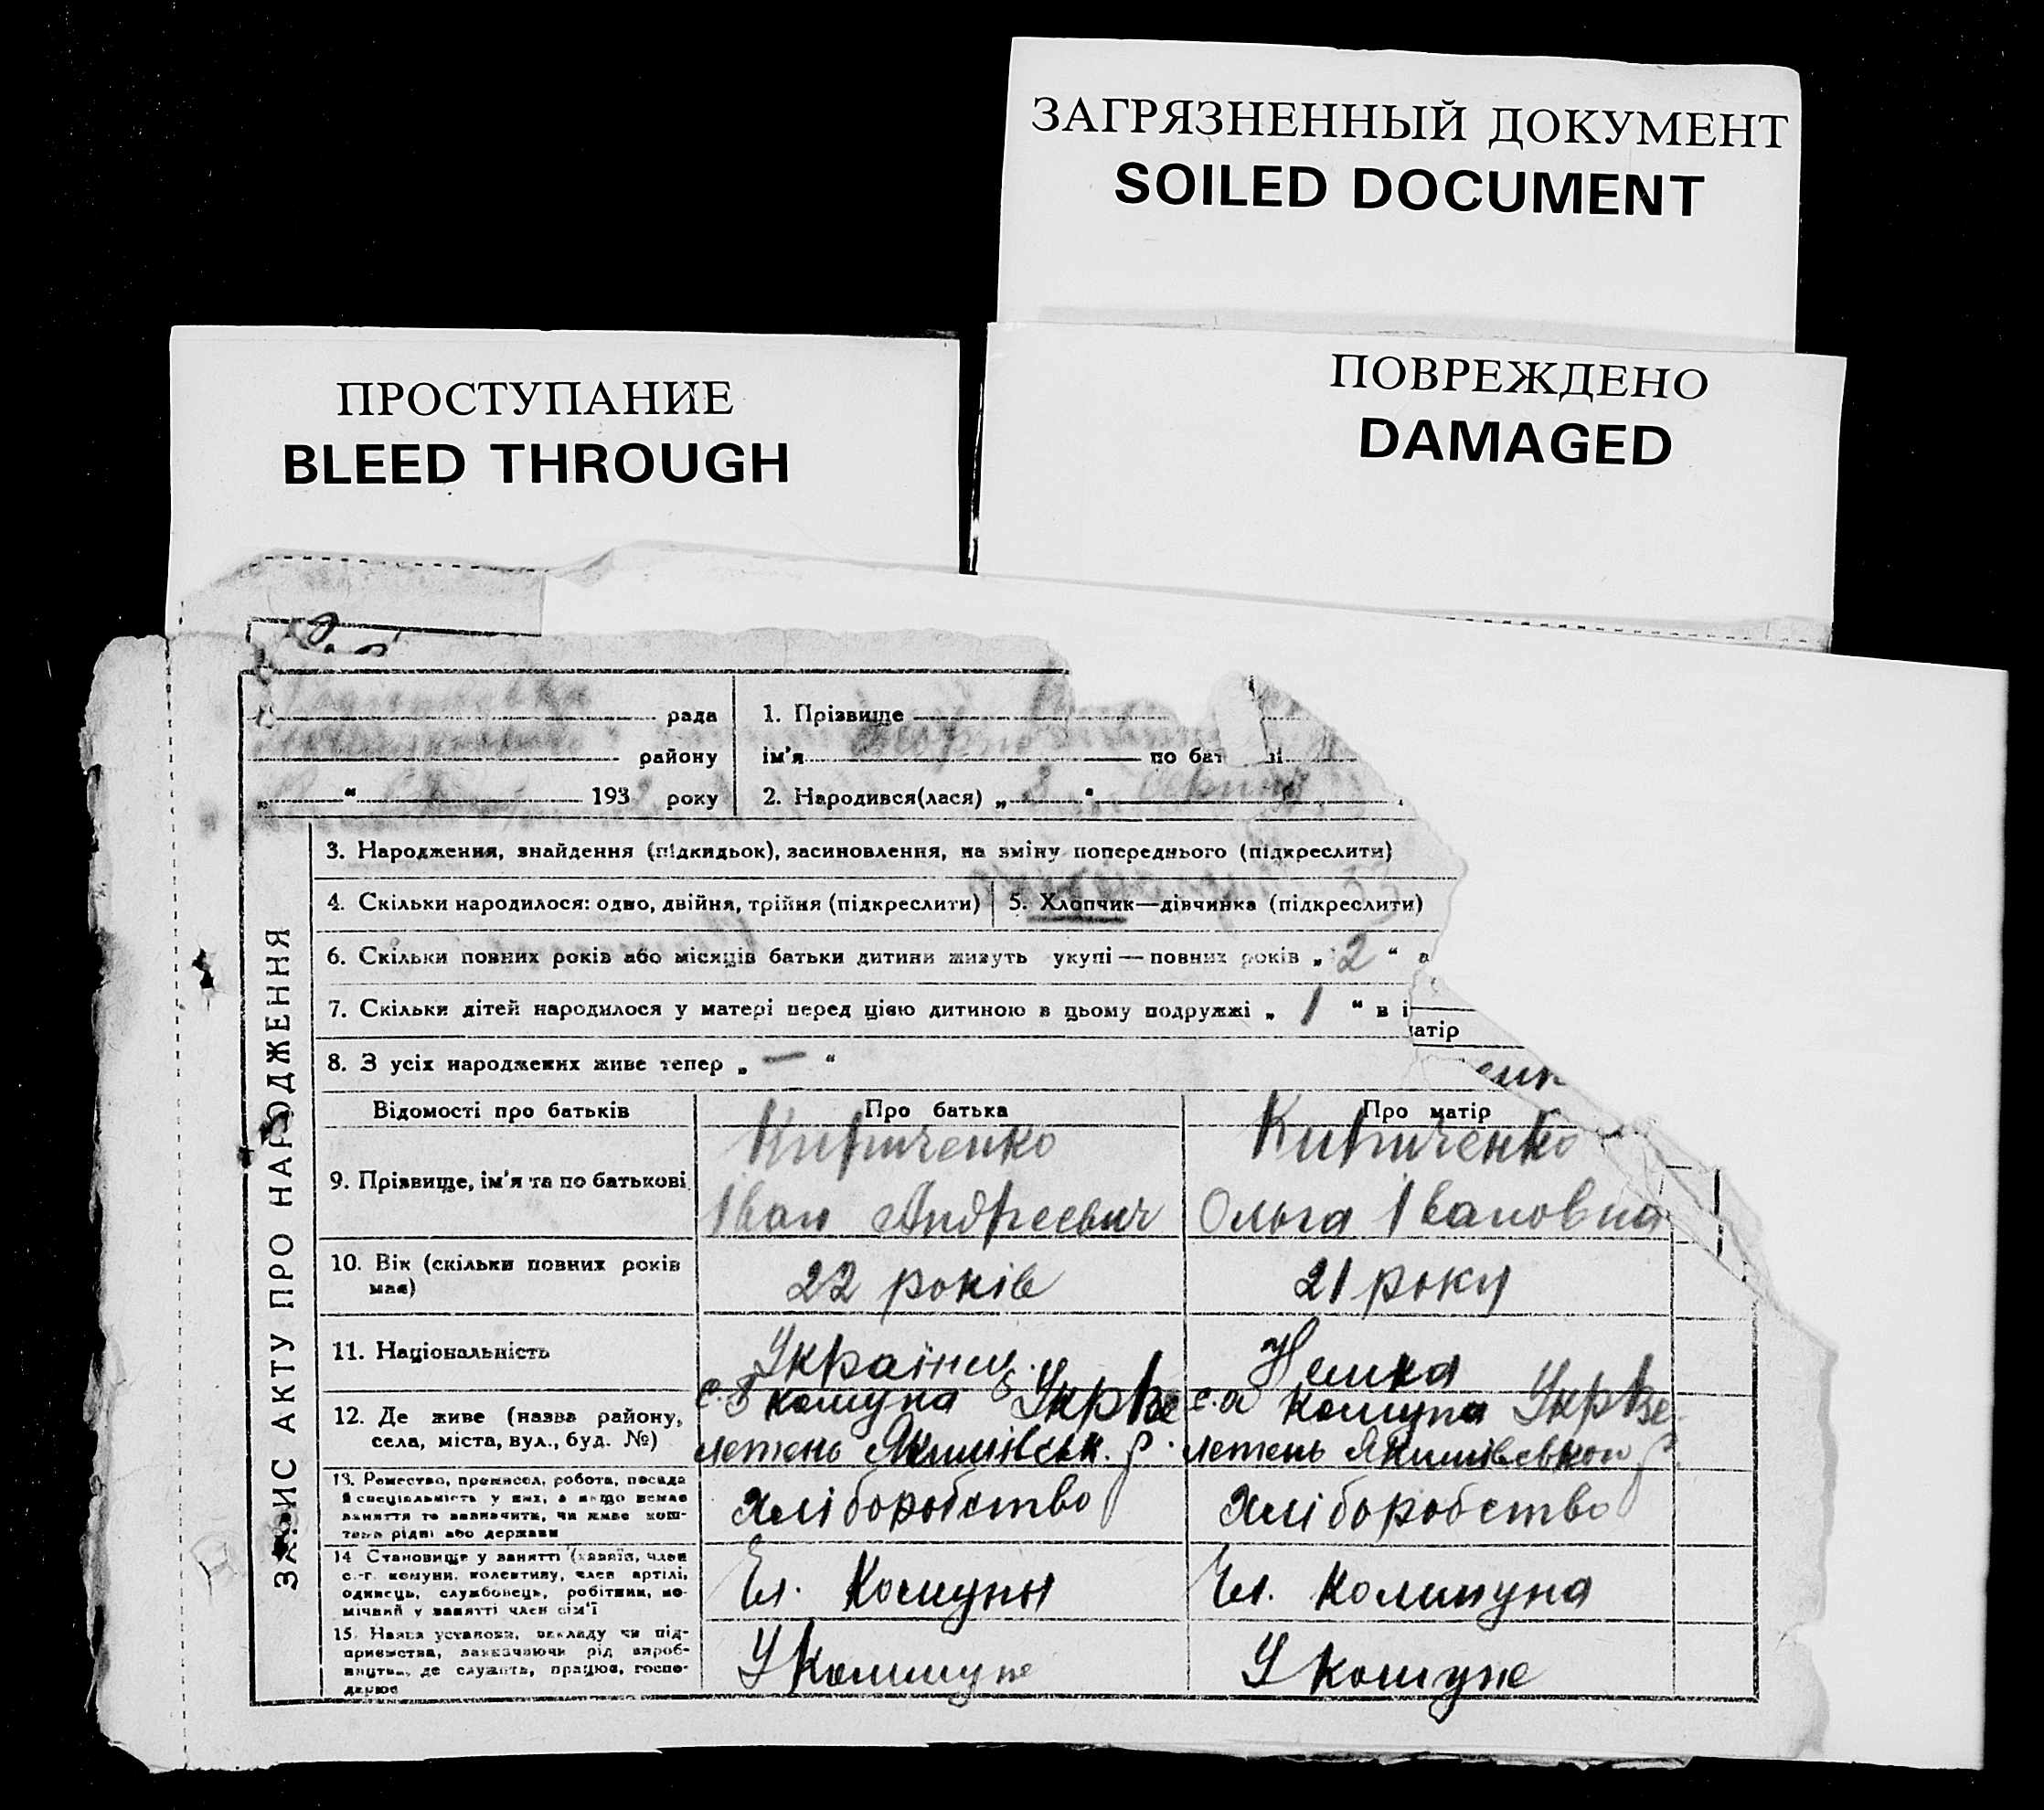 ЗАГРЯЗНЕННЫЙ ДОКУМЕНТ
SOILED DOCUMENT
ПРОСТУПАНИЕ
BLEED THROUGH
ПОВРЕЖДЕНО
DAMAGED
ЗАПИС АКТУ ПРО НАРОДЖЕННЯ
рада
району
„ “ 193 року
1. Прізвище
ім'я по бат
2. Народився(лася) „ 3 “
3. Народження, знайдення (підкидьок), засиновлення, на зміну попереднього (підкреслити)
4. Скільки народилося: одно, двійня, трійня (підкреслити) 5. Хлопчик—дівчинка (підкреслити)
6. Скільки повних років або місяців батьки дитини живуть укупі — повних років „ 2 “
7. Скільки дітей народилося у матері перед цією дитиною в цьому подружжі „ 1 “ в
атір
8. З усіх народжених живе тепер „ — “
Відомості про батьків Про батька Про матір
9. Прізвище, ім'я та по батькові
Кириченко
Іван Андреевич
Кириченко
Ольга Івановна
10. Вік (скільки повних років має)
22 років
21 року
11. Національність
Українец
Немка
12. Де живе (назва району,
села, міста, вул., буд. №)
комуна Укрвсе
летень Якимівськ. р.
комуна Укрвсе
летень Якимівськой р.
13. Ремество, промисел, робота, посада
й спеціяльність у них, а якщо немає
заняття то зазначити, чи живе кош-
том рідні або держави
хліборобство
хліборобство
14 Становище у занятті (хазяїн, член
с.-г. комуни, колективу, член артілі,
одинець, службовець, робітник, по-
мічний у занятті член сім'ї
Чл. Комуны
Чл. Коммуна
15. Назва установи, закладу чи під-
приємства, зазначаючи рід вироб-
ництва, де служить, працює, госпо-
дарює
У Коммуне
У комуне